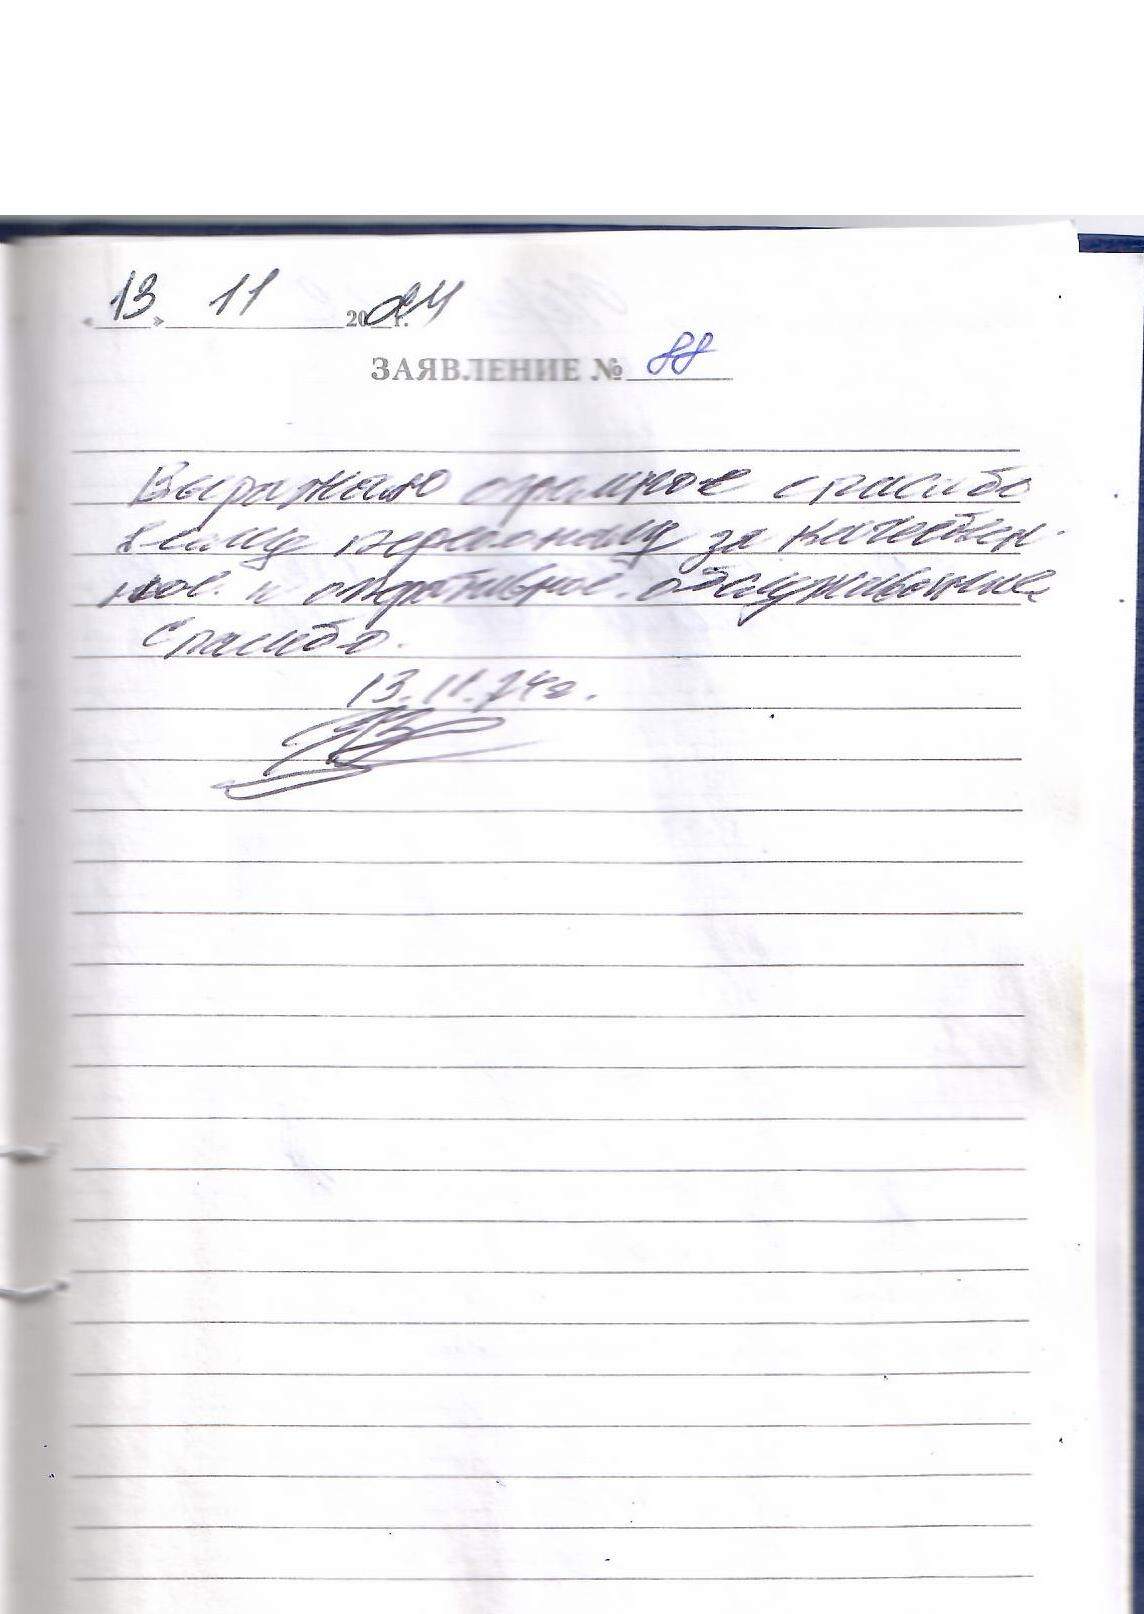 «13» 11 2024 г.
ЗАЯВЛЕНИЕ № 88
Выражаю огромное спасибо
вашему персоналу за качествен-
ное и оперативное обслуживание
Спасибо.
13.11.24г.